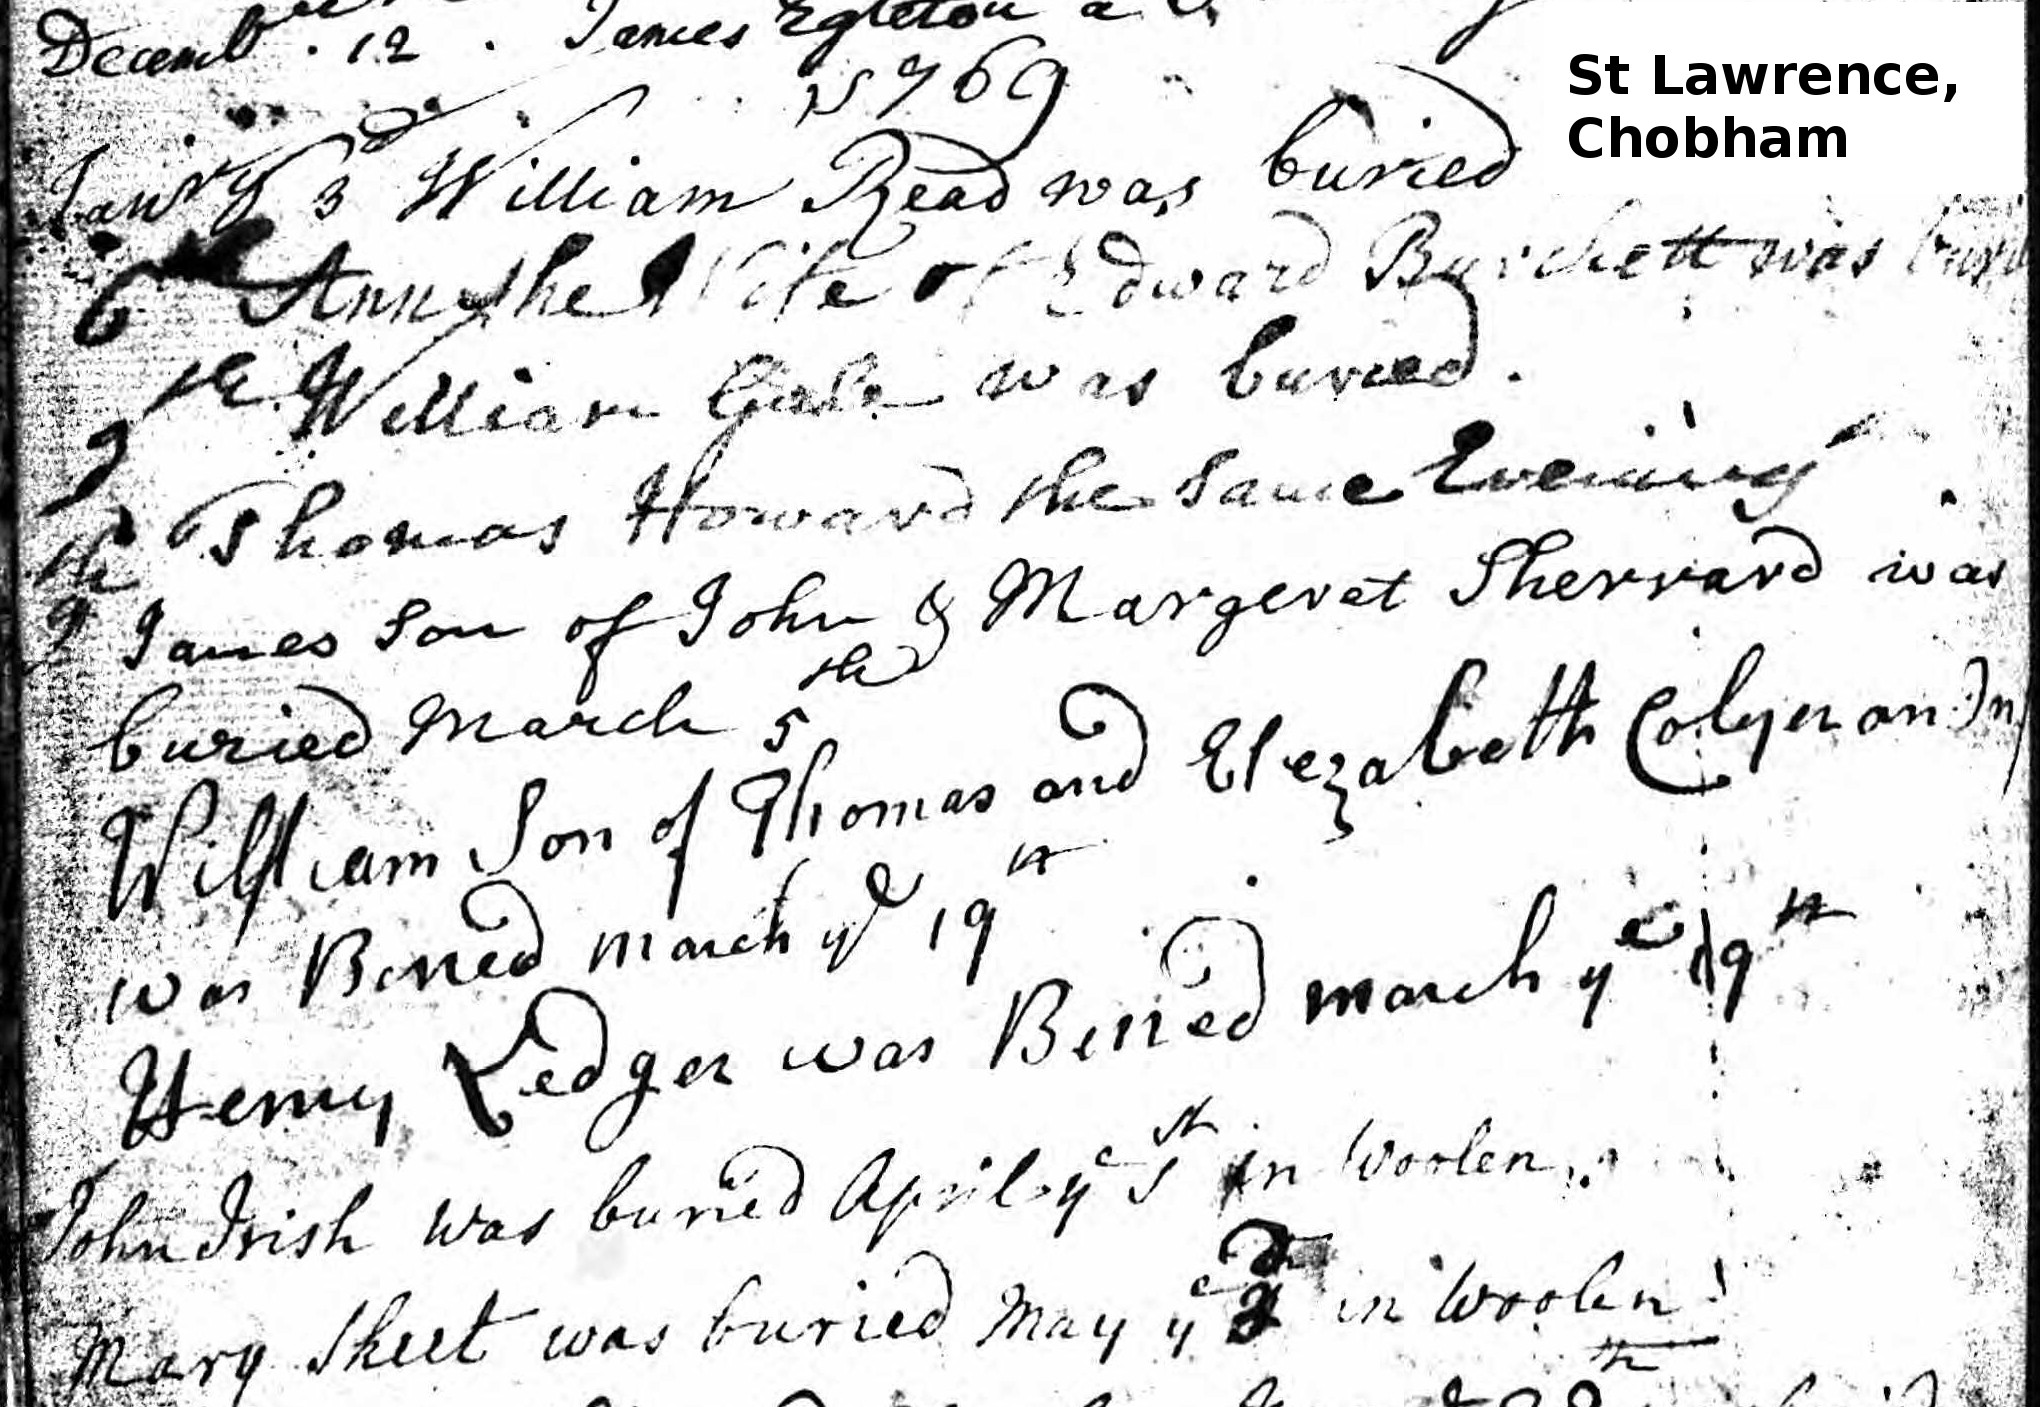 Decemb. 12. James Egleton a
St Lawrence,
Chobham
1769
Janry 3d William Read was buried
6 Ann the Wife of Edward Burchett was
9 th William Gale was buried.
9 th Thomas Howard the Same Evening
James Son of John & Margeret Sherrard was
buried March 5th
William Son of Thomas and Elezabeth Colyer an In
was Buried march ye 19th
Henry Ledger was Buried march ye 19th
John Irish was buried April ye 5th in Woolen
Mary Skeet was buried May ye in Woolen